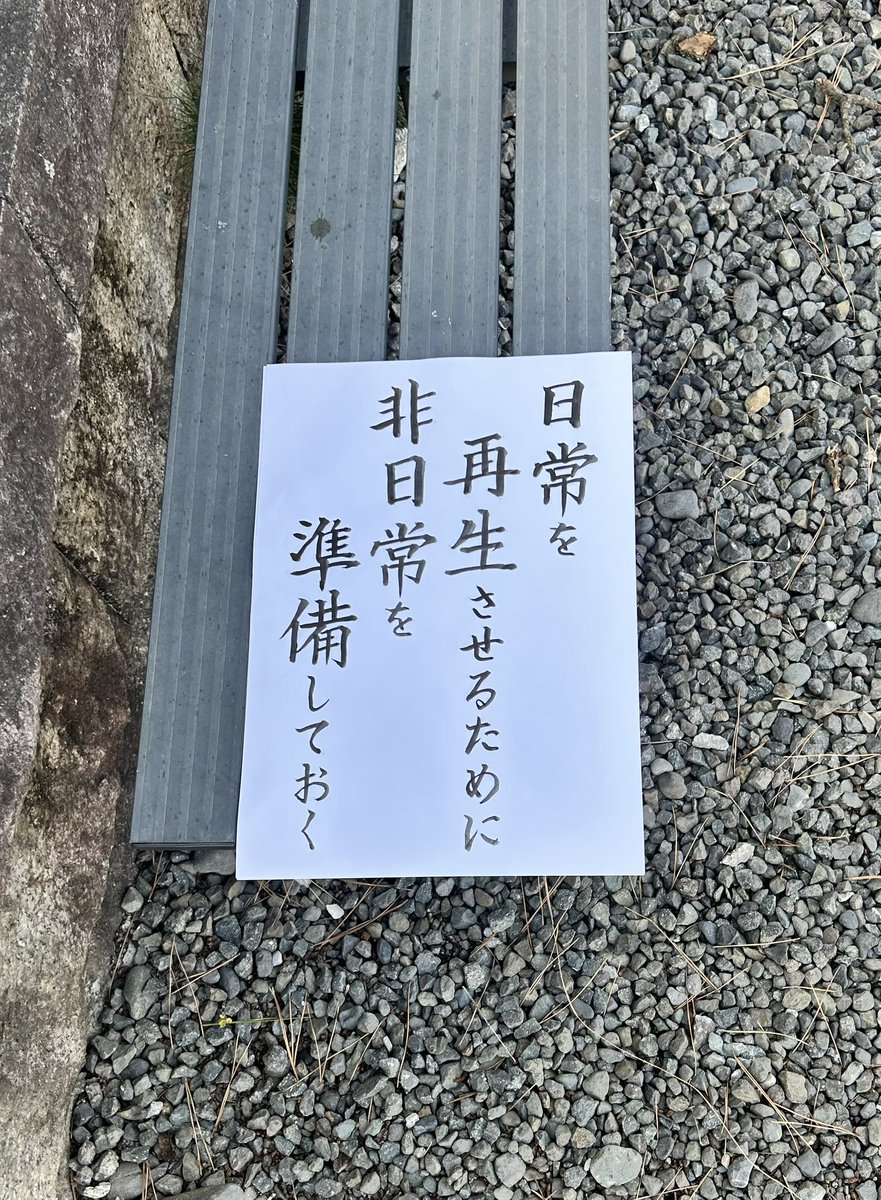 日常を
再生させるために
非日常を
準備しておく